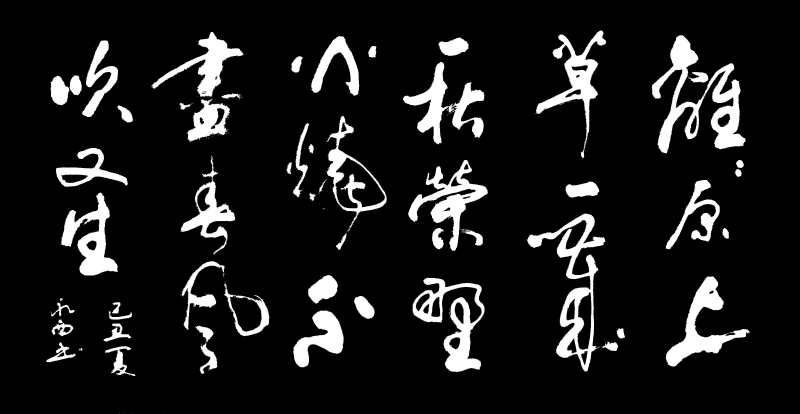 離〻原上
草一歲
一枯榮野
火燒不
盡春風
吹又生
己丑夏